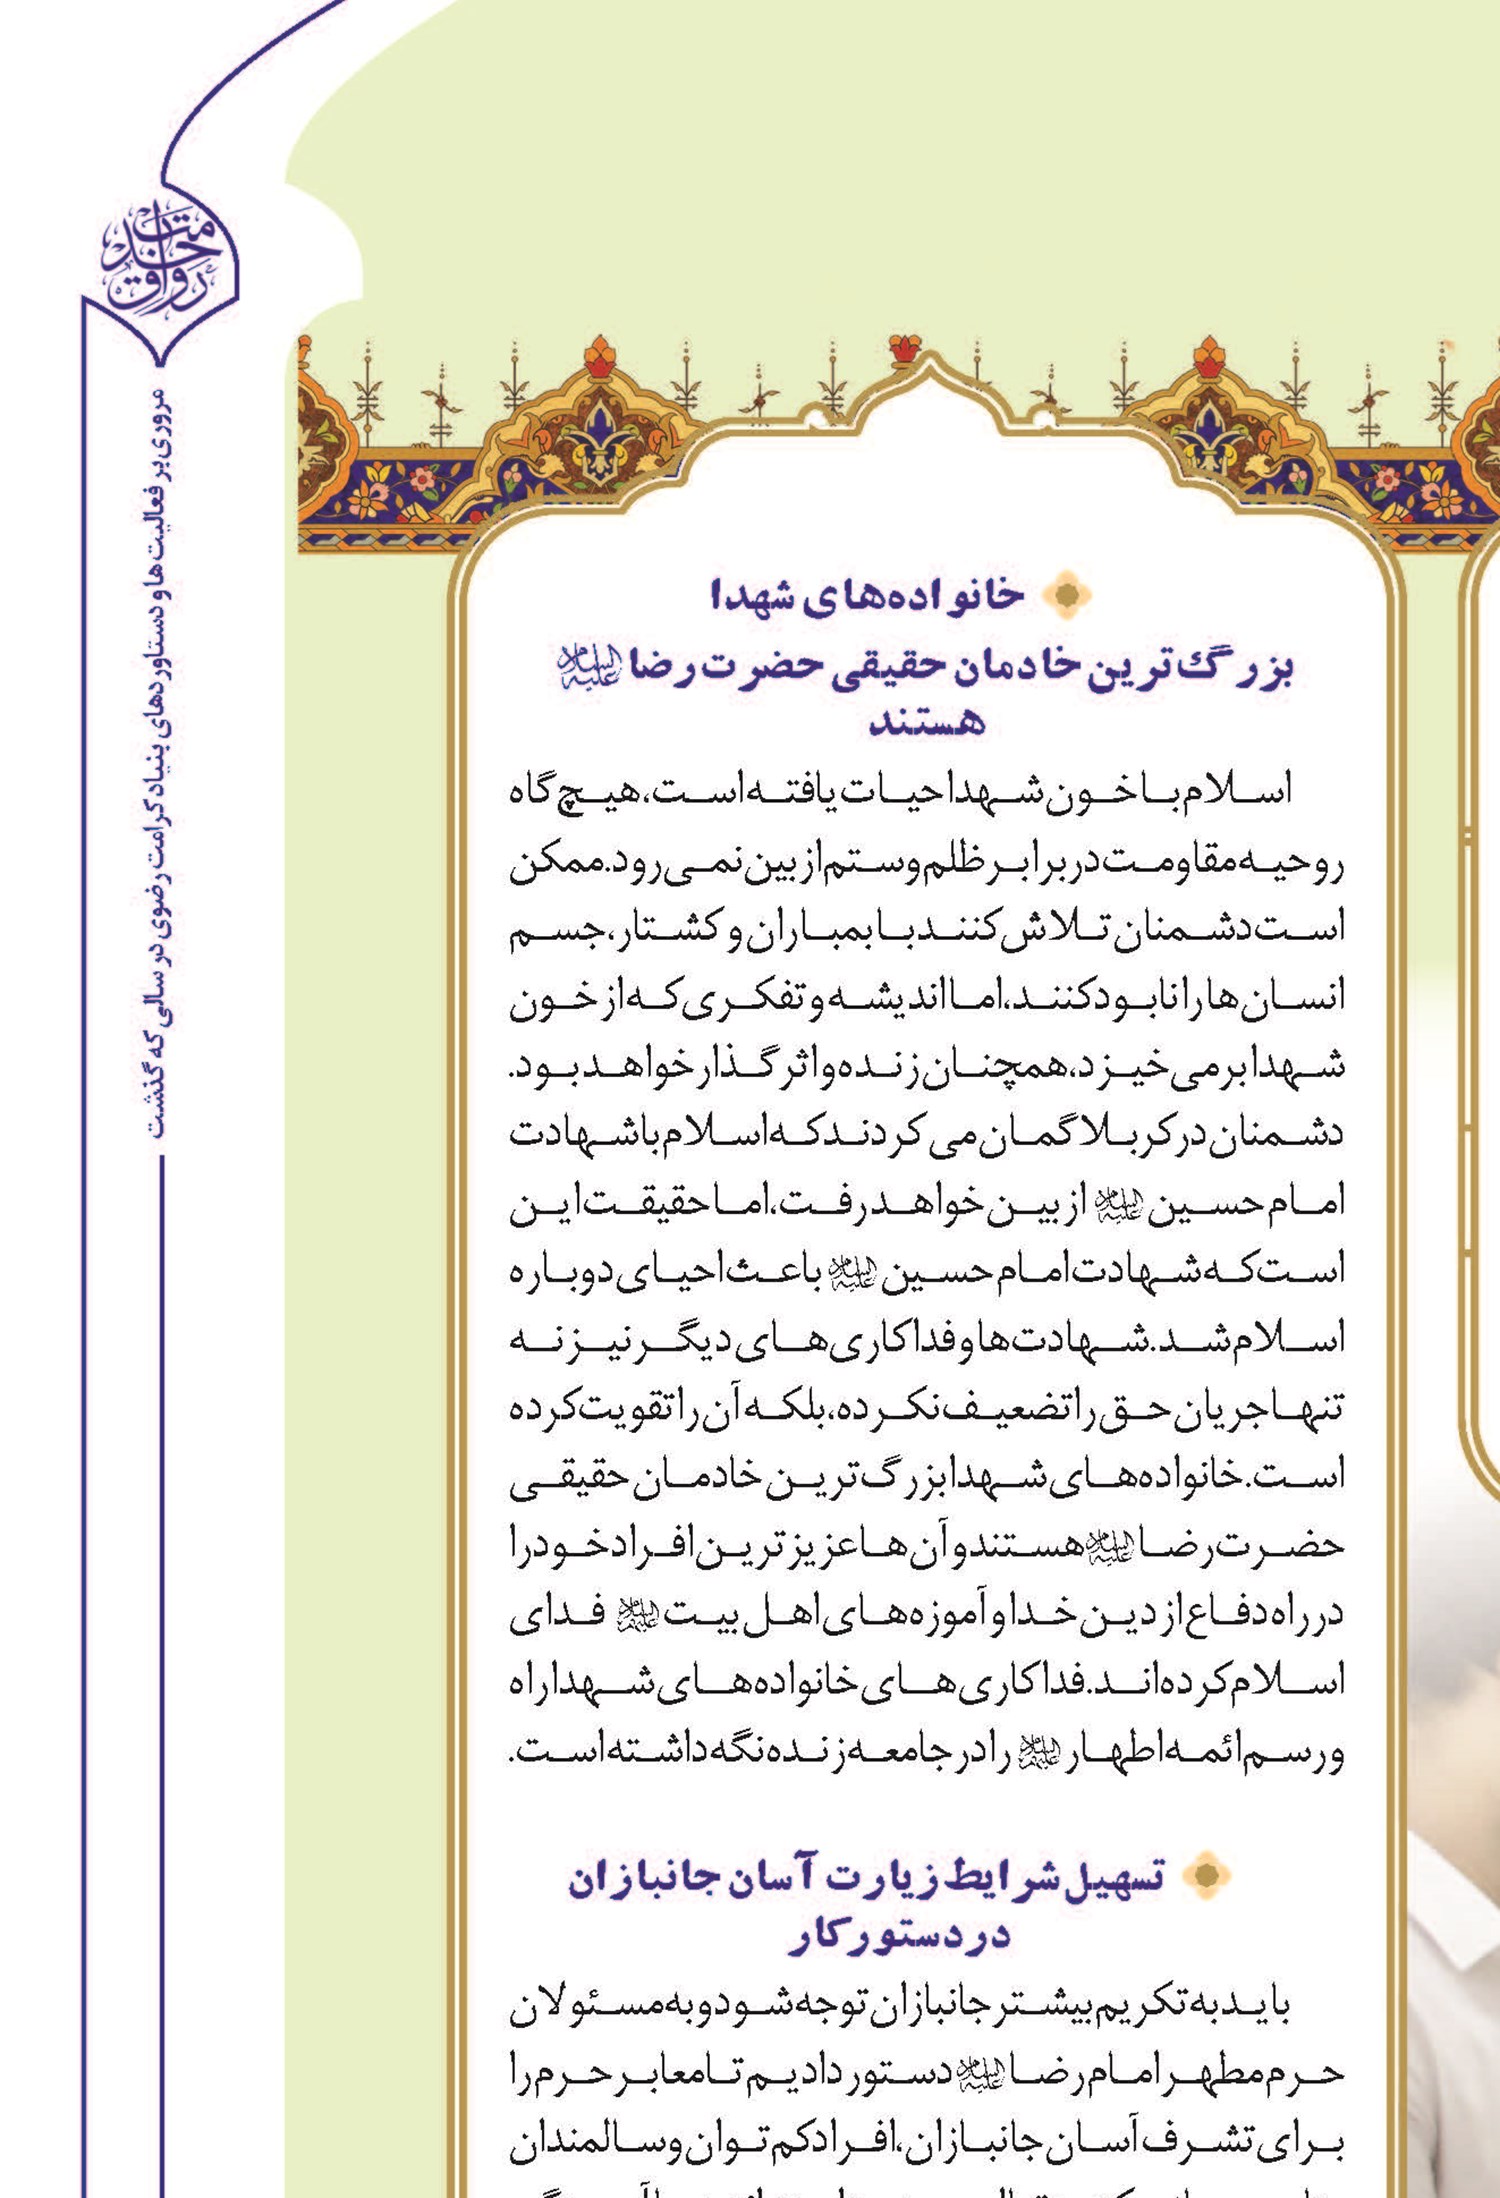 رواق خدمت
مروری بر فعالیت‌ها و دستاوردهای بنیاد کرامت رضوی در سالی که گذشت
خانواده‌های شهدا
بزرگ‌ترین خادمان حقیقی حضرت رضا علیه‌السلام
هستند
اسلام با خون شهدا حیات یافته است، هیچ گاه
روحیه مقاومت در برابر ظلم و ستم از بین نمی‌رود. ممکن
است دشمنان تلاش کنند با بمباران و کشتار، جسم
انسان‌ها را نابود کنند، اما اندیشه و تفکری که از خون
شهدا برمی‌خیزد، همچنان زنده و اثرگذار خواهد بود.
دشمنان در کربلا گمان می‌کردند که اسلام با شهادت
امام حسین علیه‌السلام از بین خواهد رفت، اما حقیقت این
است که شهادت امام حسین علیه‌السلام باعث احیای دوباره
اسلام شد. شهادت‌ها و فداکاری‌های دیگر نیز نه
تنها جریان حق را تضعیف نکرده، بلکه آن را تقویت کرده
است. خانواده‌های شهدا بزرگ‌ترین خادمان حقیقی
حضرت رضا علیه‌السلام هستند و آن‌ها عزیزترین افراد خود را
در راه دفاع از دین خدا و آموزه‌های اهل بیت علیهم‌السلام فدای
اسلام کرده‌اند. فداکاری‌های خانواده‌های شهدا راه
و رسم ائمه اطهار علیهم‌السلام را در جامعه زنده نگه داشته است.
تسهیل شرایط زیارت آسان جانبازان
در دستور کار
باید به تکریم بیشتر جانبازان توجه شود و به مسئولان
حرم مطهر امام رضا علیه‌السلام دستور دادیم تا معابر حرم را
برای تشرف آسان جانبازان، افراد کم توان و سالمندان